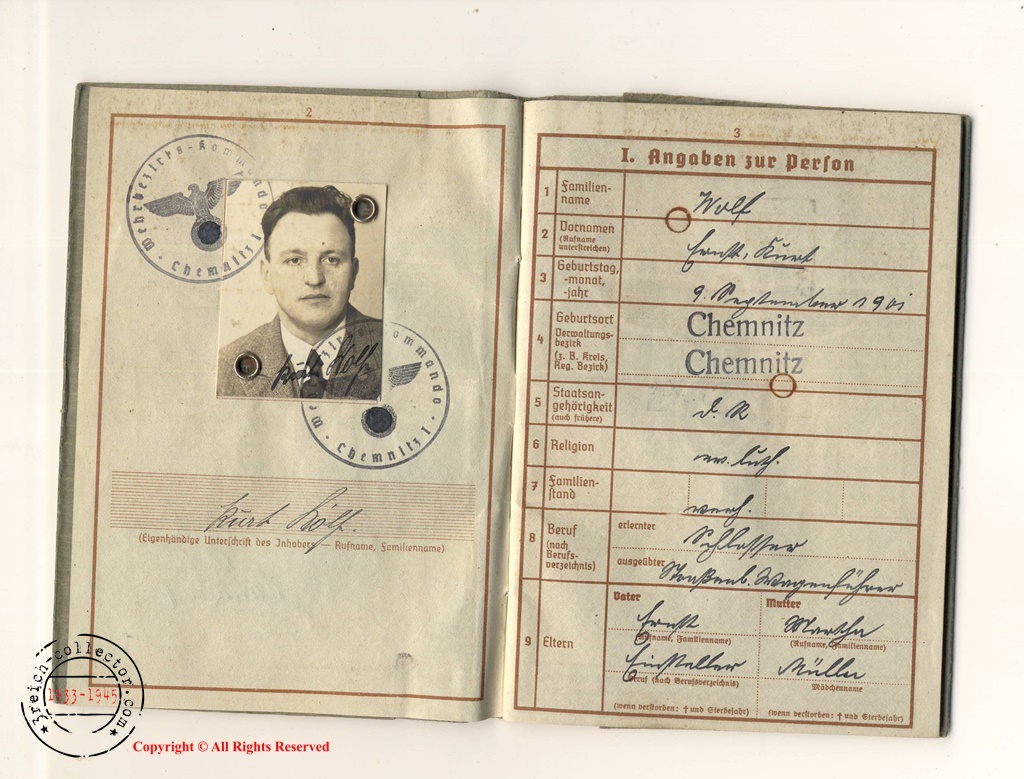 2
Wehrbezirks-Kommando
Chemnitz I
Kurt Wolf
Wehrbezirks-Kommando
Chemnitz I.
Kurt Wolf.
(Eigenhändige Unterschrift des Inhabers — Rufname, Familienname)
3
I. Angaben zur Person
1 Familien-
name
Wolf
2 Vornamen
(Rufname
unterstreichen)
Ernst, Kurt
3 Geburtstag,
-monat,
-jahr
9. September 1901
4 Geburtsort
Verwaltungs-
bezirk
(z. B. Kreis,
Reg. Bezirk)
Chemnitz
Chemnitz
5 Staatsan-
gehörigkeit
(auch frühere)
D. R
6 Religion
ev. luth.
7 Familien-
stand
verh.
8 Beruf
(nach
Berufs-
verzeichnis)
erlernter
Schlosser
ausgeübter
Straßenb. Wagenführer
9 Eltern
Vater
Ernst
(Rufname, Familienname)
Einsteller
Beruf (nach Berufsverzeichnis)
(wenn verstorben: † und Sterbejahr)
Mutter
Martha
(Rufname, Familienname)
Müller
Mädchenname
(wenn verstorben: † und Sterbejahr)
3reich-collector.com
1933-1945
Copyright © All Rights Reserved